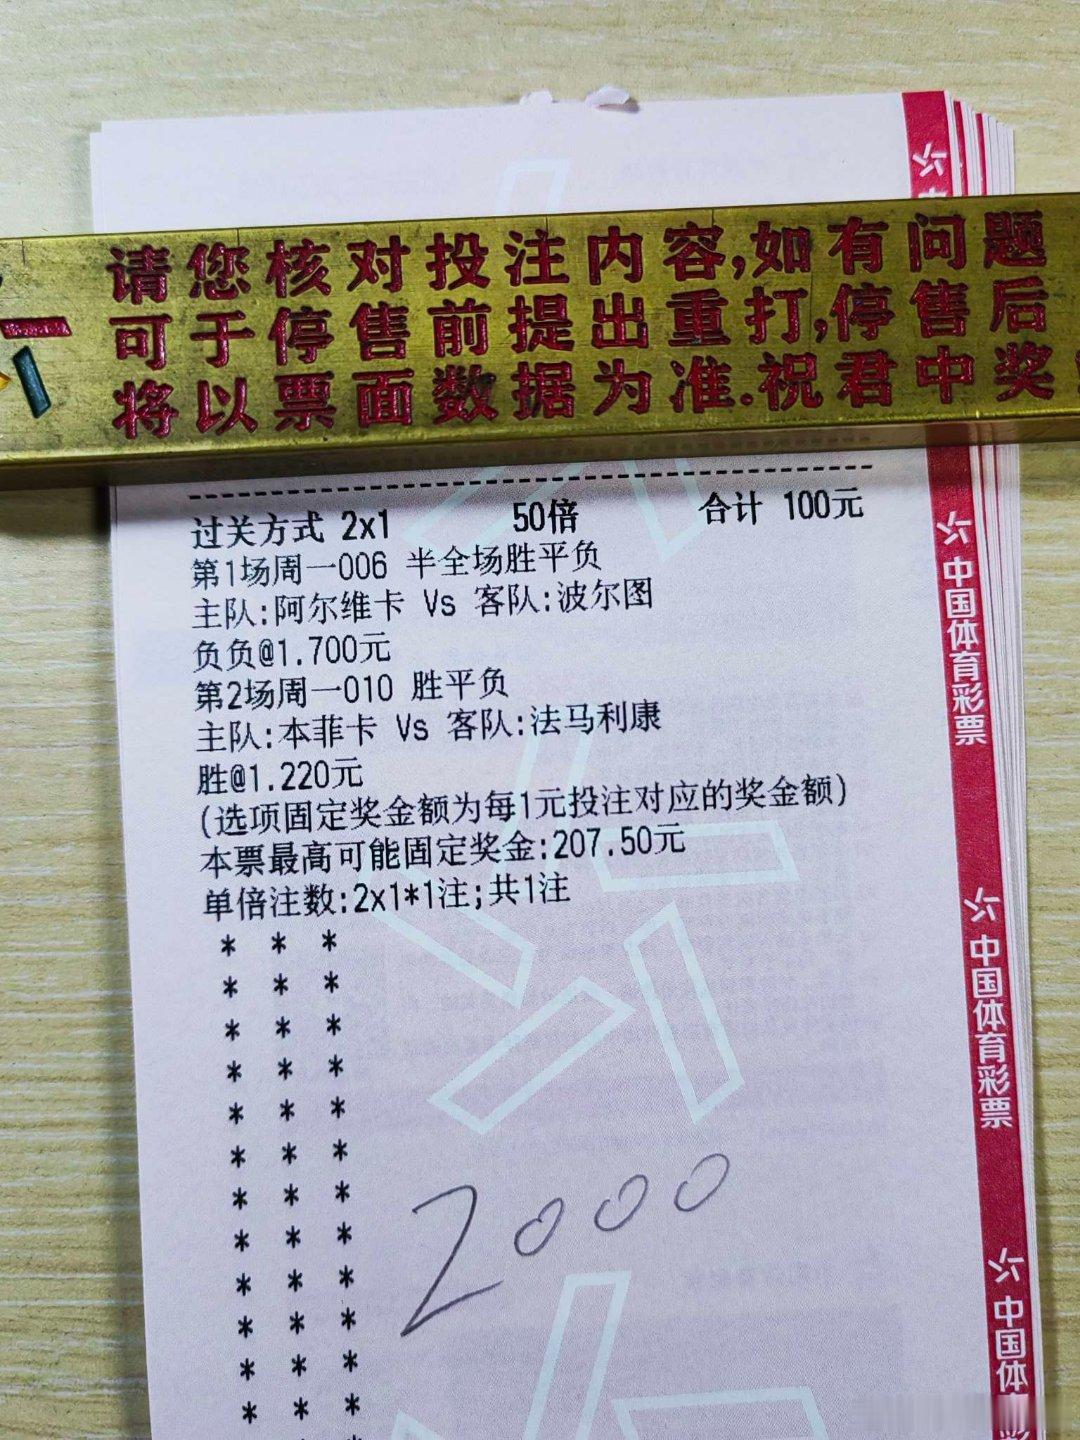 请您核对投注内容,如有问题
可于停售前提出重打,停售后
将以票面数据为准.祝君中奖
过关方式 2x1 50倍 合计 100元
第1场周一006 半全场胜平负
主队:阿尔维卡 Vs 客队:波尔图
负负@1.700元
第2场周一010 胜平负
主队:本菲卡 Vs 客队:法马利康
胜@1.220元
(选项固定奖金额为每1元投注对应的奖金额)
本票最高可能固定奖金:207.50元
单倍注数:2x1*1注;共1注
* * *
* * *
* * *
* * *
* * *
* * *
* * *
* * *
* * *
* * *
* * *
* * *
2000
中国体育彩票
中国体育彩票
中国体